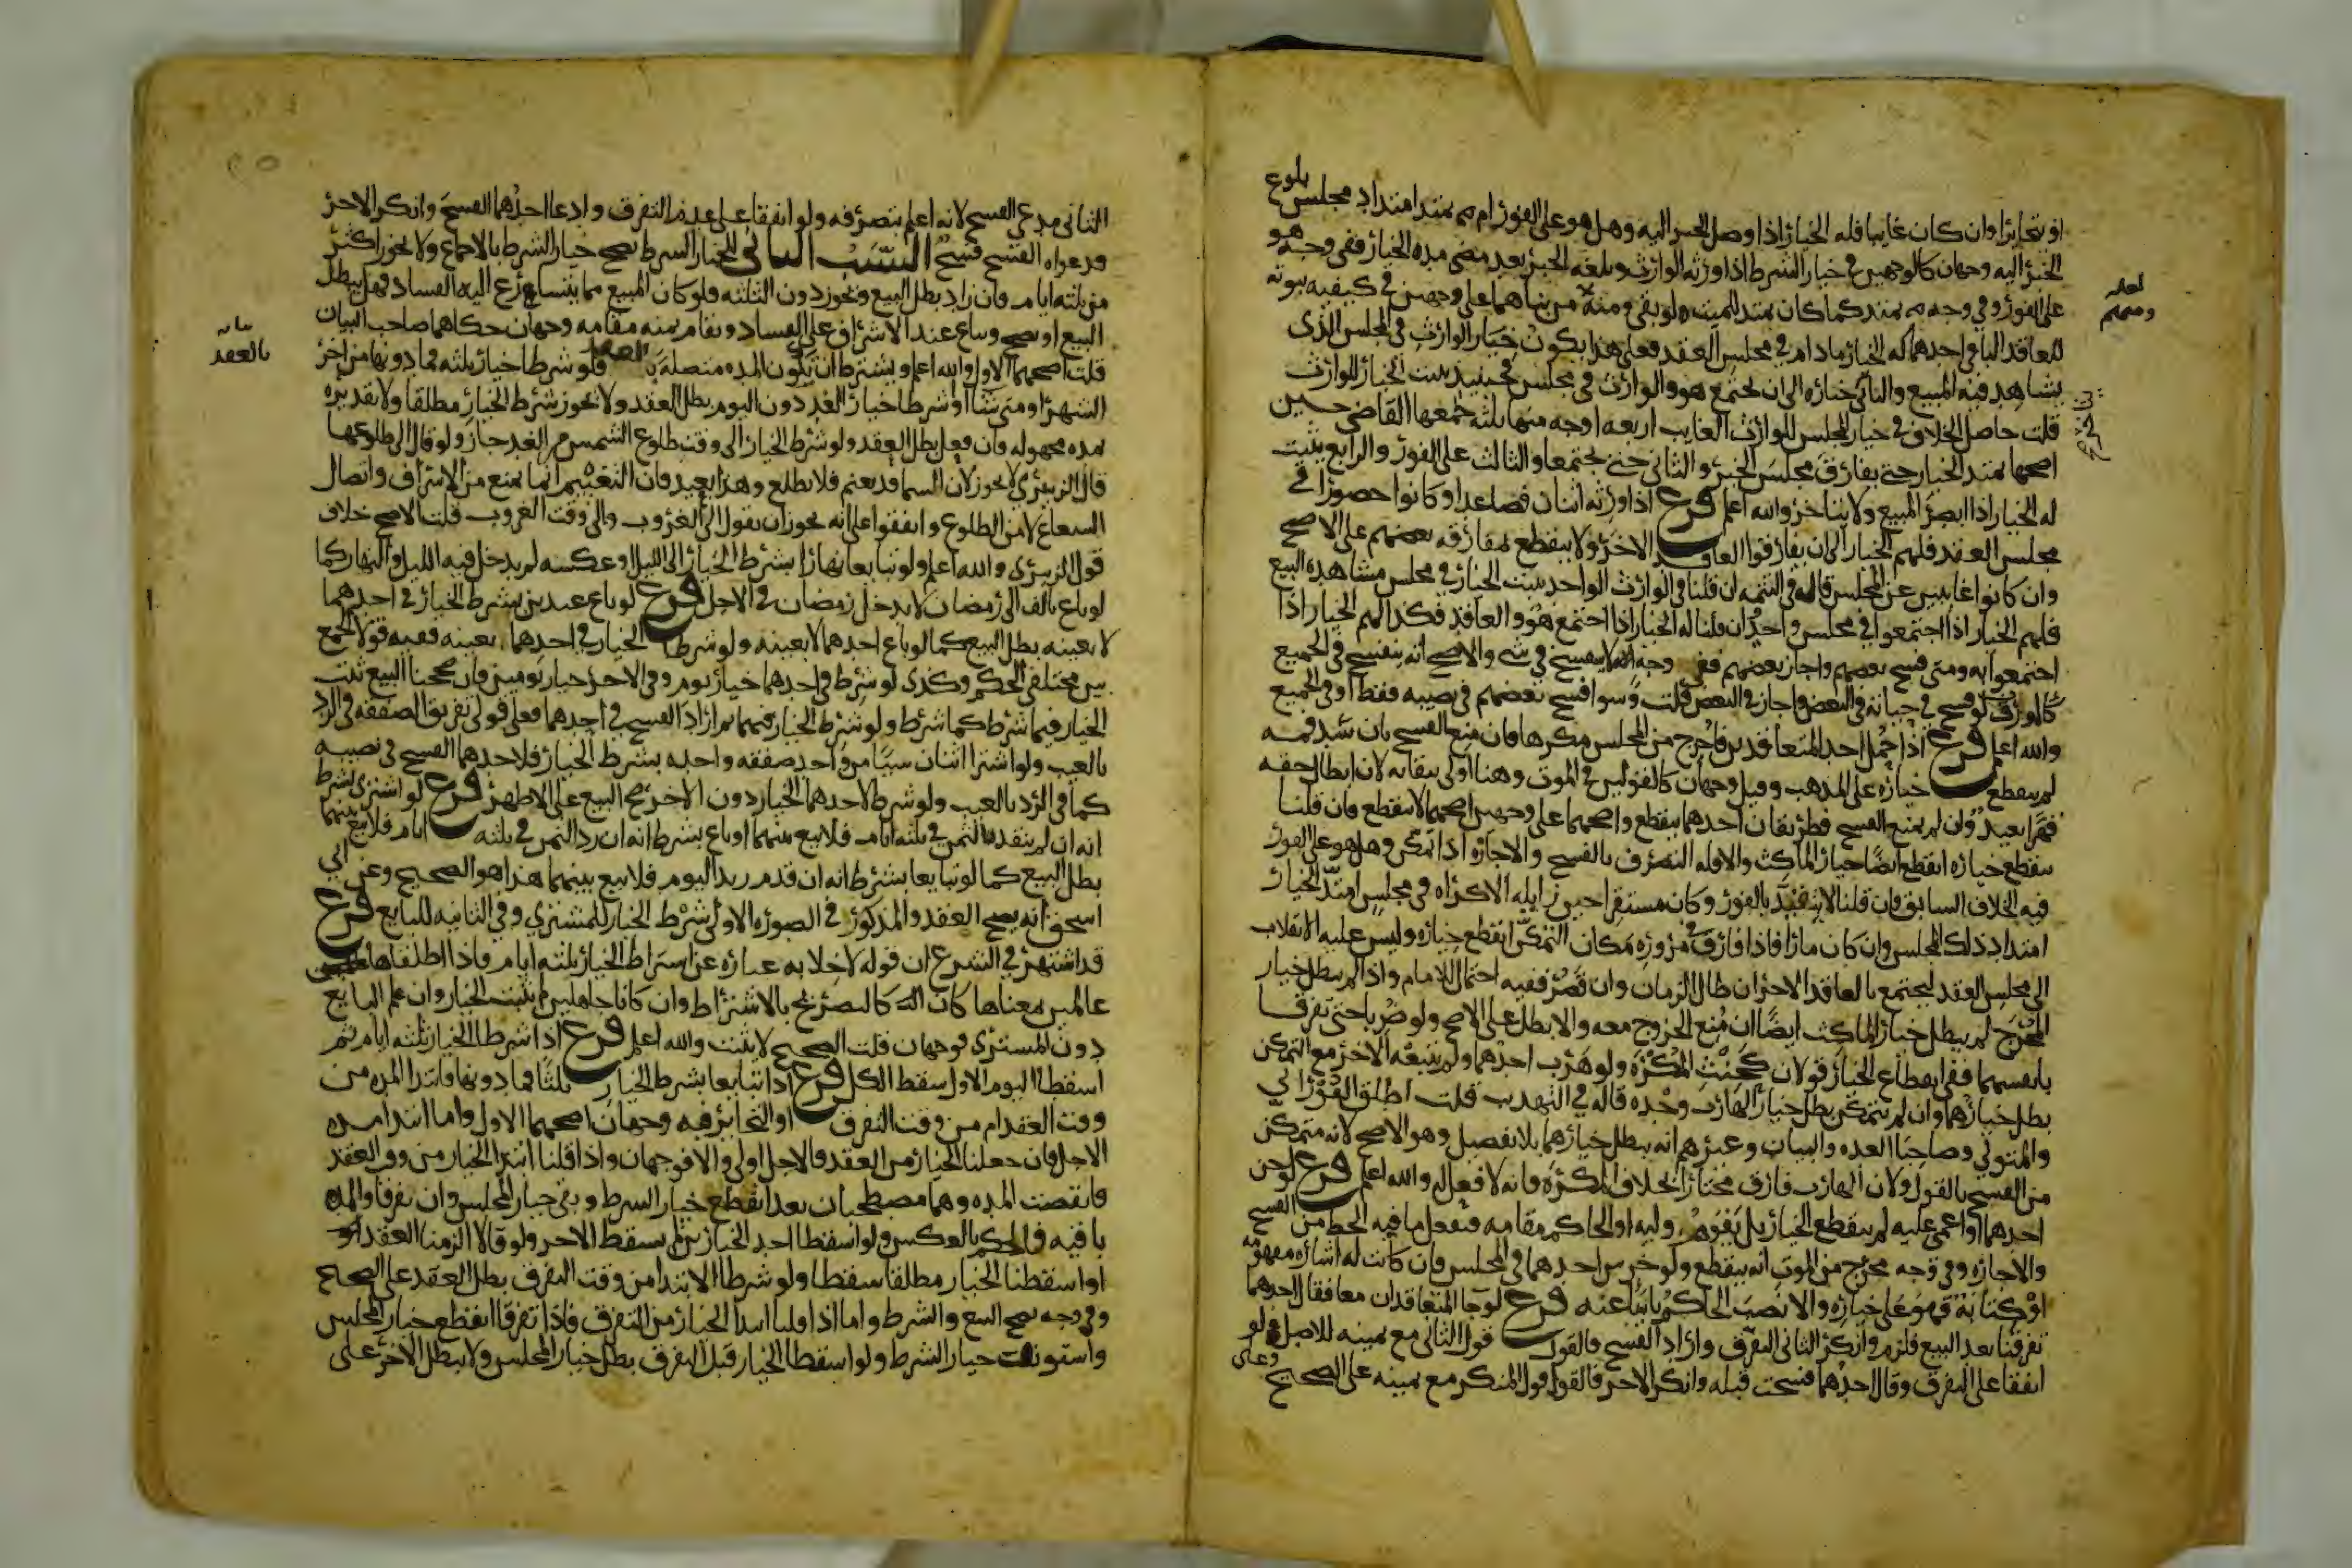 او يتخايرا وان كان غايبا فله الخيار اذا وصل الخبر اليه وهل هو على الفور ام يمتد امتداد مجلس بلوغ
الخبر اليه وجهان كالوجهين في خيار الشرط اذا ورثه الوارث وبلغه الخبر بعد مضي مدة الخيار ففي وجه هو
على الفور وفي وجه يمتد كما كان يمتد للميت لو بقي ومنهم من بناهما على وجهين في كيفيه ثبوته
للعاقد الباقي احدهما له الخيار ما دام في مجلس العقد فعلى هذا يكون خيار الوارث في المجلس الذي
يشاهد فيه المبيع والثاني خياره الى ان يجتمع هو والوارث في مجلس فحينيذ يثبت الخيار للوارث
قلت حاصل الخلاف في خيار المجلس للوارث الغايب اربعه اوجه منها ثلثه جمعها القاضي حسين
اصحها يمتد الخيار حتى يفارق مجلس الخبر والثاني حتى يجتمعا والثالث على الفور والرابع يثبت
له الخيار اذا ابصر المبيع ولا يتاخر والله اعلم فرع اذا ورثه اثنان فصاعدا وكانوا حضورا في
مجلس العقد فلهم الخيار الى ان يفارقوا العاقد الاخر ولا ينقطع بمفارقه بعضهم على الاصح
وان كانوا غايبين عن المجلس قال في التتمه ان قلنا في الوارث الواحد يثبت الخيار في مجلس مشاهده المبيع
فلهم الخيار اذا اجتمعوا في مجلس واحد وان قلنا له الخيار اذا اجتمع هو والعاقد فكذا لهم الخيار اذا
اجتمعوا به ومتى فسخ بعضهم واجاز بعضهم ففي وجه لا ينفسخ في شي والاصح انه ينفسخ في الجميع
كالمورث لو فسخ في حياته في البعض واجاز في البعض قلت وسوا فسخ بعضهم في نصيبه فقط او في الجميع
والله اعلم فرع اذا حمل احد المتعاقدين فاخرج من المجلس مكرها فان منع الفسخ بان شد فمه
لم ينقطع خياره على المذهب وقيل وجهان كالقولين في الموت وهنا اولى ببقايه لان ابطال حقه
قهرا بعيد وان لم يمنع الفسخ فطريقان احدهما ينقطع واصحهما على وجهين اصحهما لا ينقطع فان قلنا
ينقطع خياره انقطع ايضا خيار الماكث والا فله التصرف بالفسخ والاجازه اذا تمكن وهل هو على الفور
فيه الخلاف السابق فان قلنا لا يتقيد بالفور وكان مستقرا حين زايله الاكراه في مجلس امتد الخيار
امتداد ذلك المجلس وان كان مارا فاذا فارق في مروره مكان التمكن انقطع خياره وليس عليه الانقلاب
الى مجلس العقد ليجتمع بالعاقد الاخر ان طال الزمان وان قصر ففيه احتمال للامام واذا لم يبطل خيار
المخرج لم يبطل خيار الماكث ايضا ان منع الخروج معه والا بطل على الاصح ولو ضربا حتى تفرقا
بانفسهما ففي انقطاع الخيار قولان كحنث المكره ولو هرب احدهما ولم يتبعه الاخر مع التمكن
بطل خيارهما وان لم يتمكن بطل خيار الهارب وحده قاله في التهذيب قلت اطلق الفوراني
والمتولي وصاحبا العده والبيان وغيرهم انه يبطل خيارهما بلا تفصيل وهو الاصح لانه متمكن
من الفسخ بالقول ولان الهارب فارق مختارا بخلاف المكره فانه لا فعل له والله اعلم فرع لو جن
احدهما او اغمي عليه لم ينقطع الخيار بل يقوم وليه او الحاكم مقامه فيفعل ما فيه الحظ من الفسخ
والاجازه وفي وجه مخرج من الموت انه ينقطع ولو خرس احدهما في المجلس فان كانت له اشاره مفهومه
او كتابة فهو على خياره والا نصب الحاكم نايبا عنه فرع لو جا المتعاقدان معا فقال احدهما
تفرقنا بعد البيع فلزم وانكر الثاني التفرق واراد الفسخ فالقول قول الثاني مع يمينه للاصل ولو
اتفقا على التفرق وقال احدهما فسخت قبله وانكر الاخر فالقول قول المنكر مع يمينه على الصحيح
وعلى
لعله
ومنهم
الثاني مدعي الفسخ لانه اعلم بتصرفه ولو اتفقا على عدم التفرق وادعا احدهما الفسخ وانكر الاخر
فدعواه الفسخ فسخ السبب الثاني للخيار الشرط يصح خيار الشرط بالاجماع ولا يجوز اكثر
من ثلثه ايام فان زاد بطل البيع ويجوز دون الثلثه فلو كان المبيع مما يتسارع اليه الفساد فهل يبطل
البيع او يصح ويباع عند الاشراف على الفساد ويقام ثمنه مقامه وجهان حكاهما صاحب البيان
قلت اصحهما الاول والله اعلم ويشترط ان تكون المده متصله فلو شرطا خيار ثلثه فما دونها من اخر
الشهر او متى شاا او شرطا خيار الغد دون اليوم بطل العقد ولا يجوز شرط الخيار مطلقا ولا تقديره
بمده مجهوله فان فعل بطل العقد ولو شرط الخيار الى وقت طلوع الشمس من الغد جاز ولو قال الى طلوعها
قال الزبيري لا يجوز لان السما قد تغيم فلا تطلع وهذا بعيد فان التغيم انما يمنع من الاشراف واتصال
الشعاع لا من الطلوع واتفقوا على انه يجوز ان يقول الى الغروب والى وقت الغروب قلت الاصح خلاف
قول الزبيري والله اعلم ولو تبايعا نهارا بشرط الخيار الى الليل او عكسه لم يدخل فيه الليل والنهار كما
لو باع بالف الى رمضان لا يدخل رمضان في الاجل فرع لو باع عبدين بشرط الخيار في احدهما
لا بعينه بطل البيع كما لو باع احدهما لا بعينه ولو شرط الخيار في احدهما بعينه ففيه قولا الجمع
بين مختلفي الحكم وكذى لو شرط في احدهما خيار يوم وفي الاخر خيار يومين فان صححنا البيع ثبت
الخيار فيما شرط كما شرط ولو شرط الخيار فيهما ثم اراد الفسخ في احدهما فعلى قولي تفريق الصفقه في الرد
بالعيب ولو اشترا اثنان شيا من واحد صفقه واحده بشرط الخيار فلاحدهما الفسخ في نصيبه
كما في الرد بالعيب ولو شرط لاحدهما الخيار دون الاخر صح البيع على الاظهر فرع لو اشترى بشرط
انه ان لم ينقده الثمن في ثلثه ايام فلا بيع بينهما او باع بشرط انه ان رد الثمن في ثلثه ايام فلا بيع بينهما
بطل البيع كما لو تبايعا بشرط انه ان قدم زيد اليوم فلا بيع بينهما هذا هو الصحيح وعن ابي
اسحق انه يصح العقد والمذكور في الصوره الاولى شرط الخيار للمشتري وفي الثانيه للبايع فرع
قد اشتهر في الشرع ان قوله لا خلابه عباره عن اشتراط الخيار ثلثه ايام فاذا اطلقاها
عالمين بمعناها كان كالتصريح بالاشتراط وان كانا جاهلين لم يثبت الخيار وان علم البايع
دون المشتري فوجهان قلت الصحيح لا يثبت والله اعلم فرع اذا شرطا الخيار ثلثه ايام ثم
اسقطا اليوم الاول سقط الكل فرع اذا تبايعا بشرط الخيار ثلثا فما دونها فابتدا المده من
وقت العقد ام من وقت التفرق او التخاير فيه وجهان اصحهما الاول واما ابتدا مده
الاجل فان جعلنا الخيار من العقد فالاجل اولى والا فوجهان واذا قلنا ابتدا الخيار من وقت العقد
فانقضت المده وهما مصطحبان بعد انقطع خيار الشرط وبقي خيار المجلس وان تفرقا والمده
باقيه فالحكم بالعكس ولو اسقطا احد الخيارين لم يسقط الاخر ولو قالا الزمنا العقد
او اسقطنا الخيار مطلقا سقطا ولو شرطا الابتدا من وقت التفرق بطل العقد على الصحيح
وفي وجه يصح البيع والشرط واما اذا قلنا ابتدا الخيار من التفرق فاذا تفرقا انقطع خيار المجلس
واستونف خيار الشرط ولو اسقطا الخيار قبل التفرق بطل خيار المجلس ولا يبطل الاخر على
بالعقد